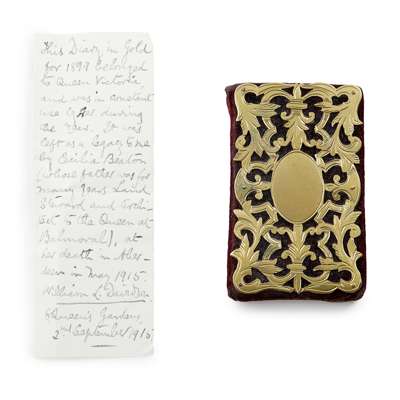 This Diary in Gold
for 1899 belonged
to Queen Victoria
and was in constant
use by Her during
the Year. It was
left as a Legacy to me
by Cecilia Beaton
(whose father was for
many years Land
Steward and
to the Queen at
Balmoral), at
her death in Aber-
deen in May 1915
William L.
8 Queen's Gardens,
2nd September 1915